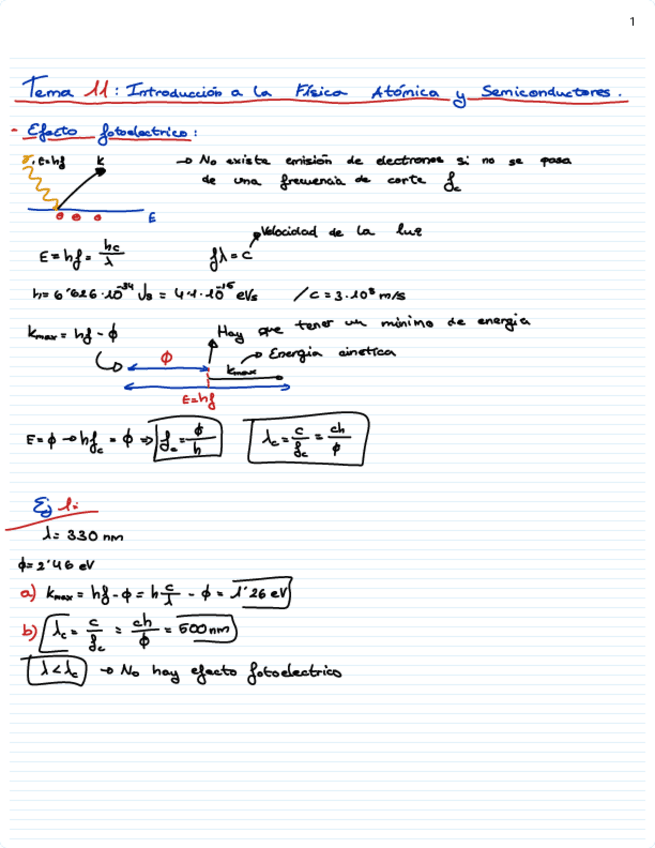 1
Tema 11: Introducción a la Física Atómica y Semiconductores.
- Efecto fotoelectrico:
γ, E=hf K → No existe emisión de electrones si no se pasa
de una frecuencia de corte f_c
E
Velocidad de la luz
E = hf = hc/λ fλ = c
h = 6'626·10^-34 Js = 4'1·10^-15 eVs / c = 3·10^8 m/s
K_max = hf - ϕ Hay que tener un mínimo de energía
ϕ K_max → Energía cinética
E=hf
E = ϕ → hf_c = ϕ ⇒ f_c = ϕ/h λ_c = c/f_c = ch/ϕ
Ej 1:
λ = 330 nm
ϕ = 2'46 eV
a) K_max = hf - ϕ = h c/λ - ϕ = 1'26 eV
b) λ_c = c/f_c = ch/ϕ = 500 nm
λ < λ_c → No hay efecto fotoelectrico